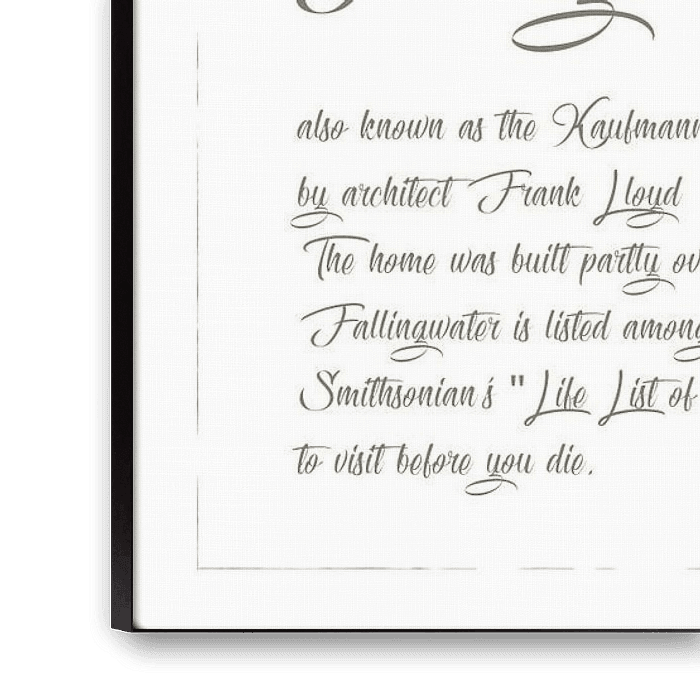 also known as the Kaufmann
by architect Frank Lloyd
The home was built partly ov
Fallingwater is listed among
Smithsonian's "Life List of
to visit before you die.